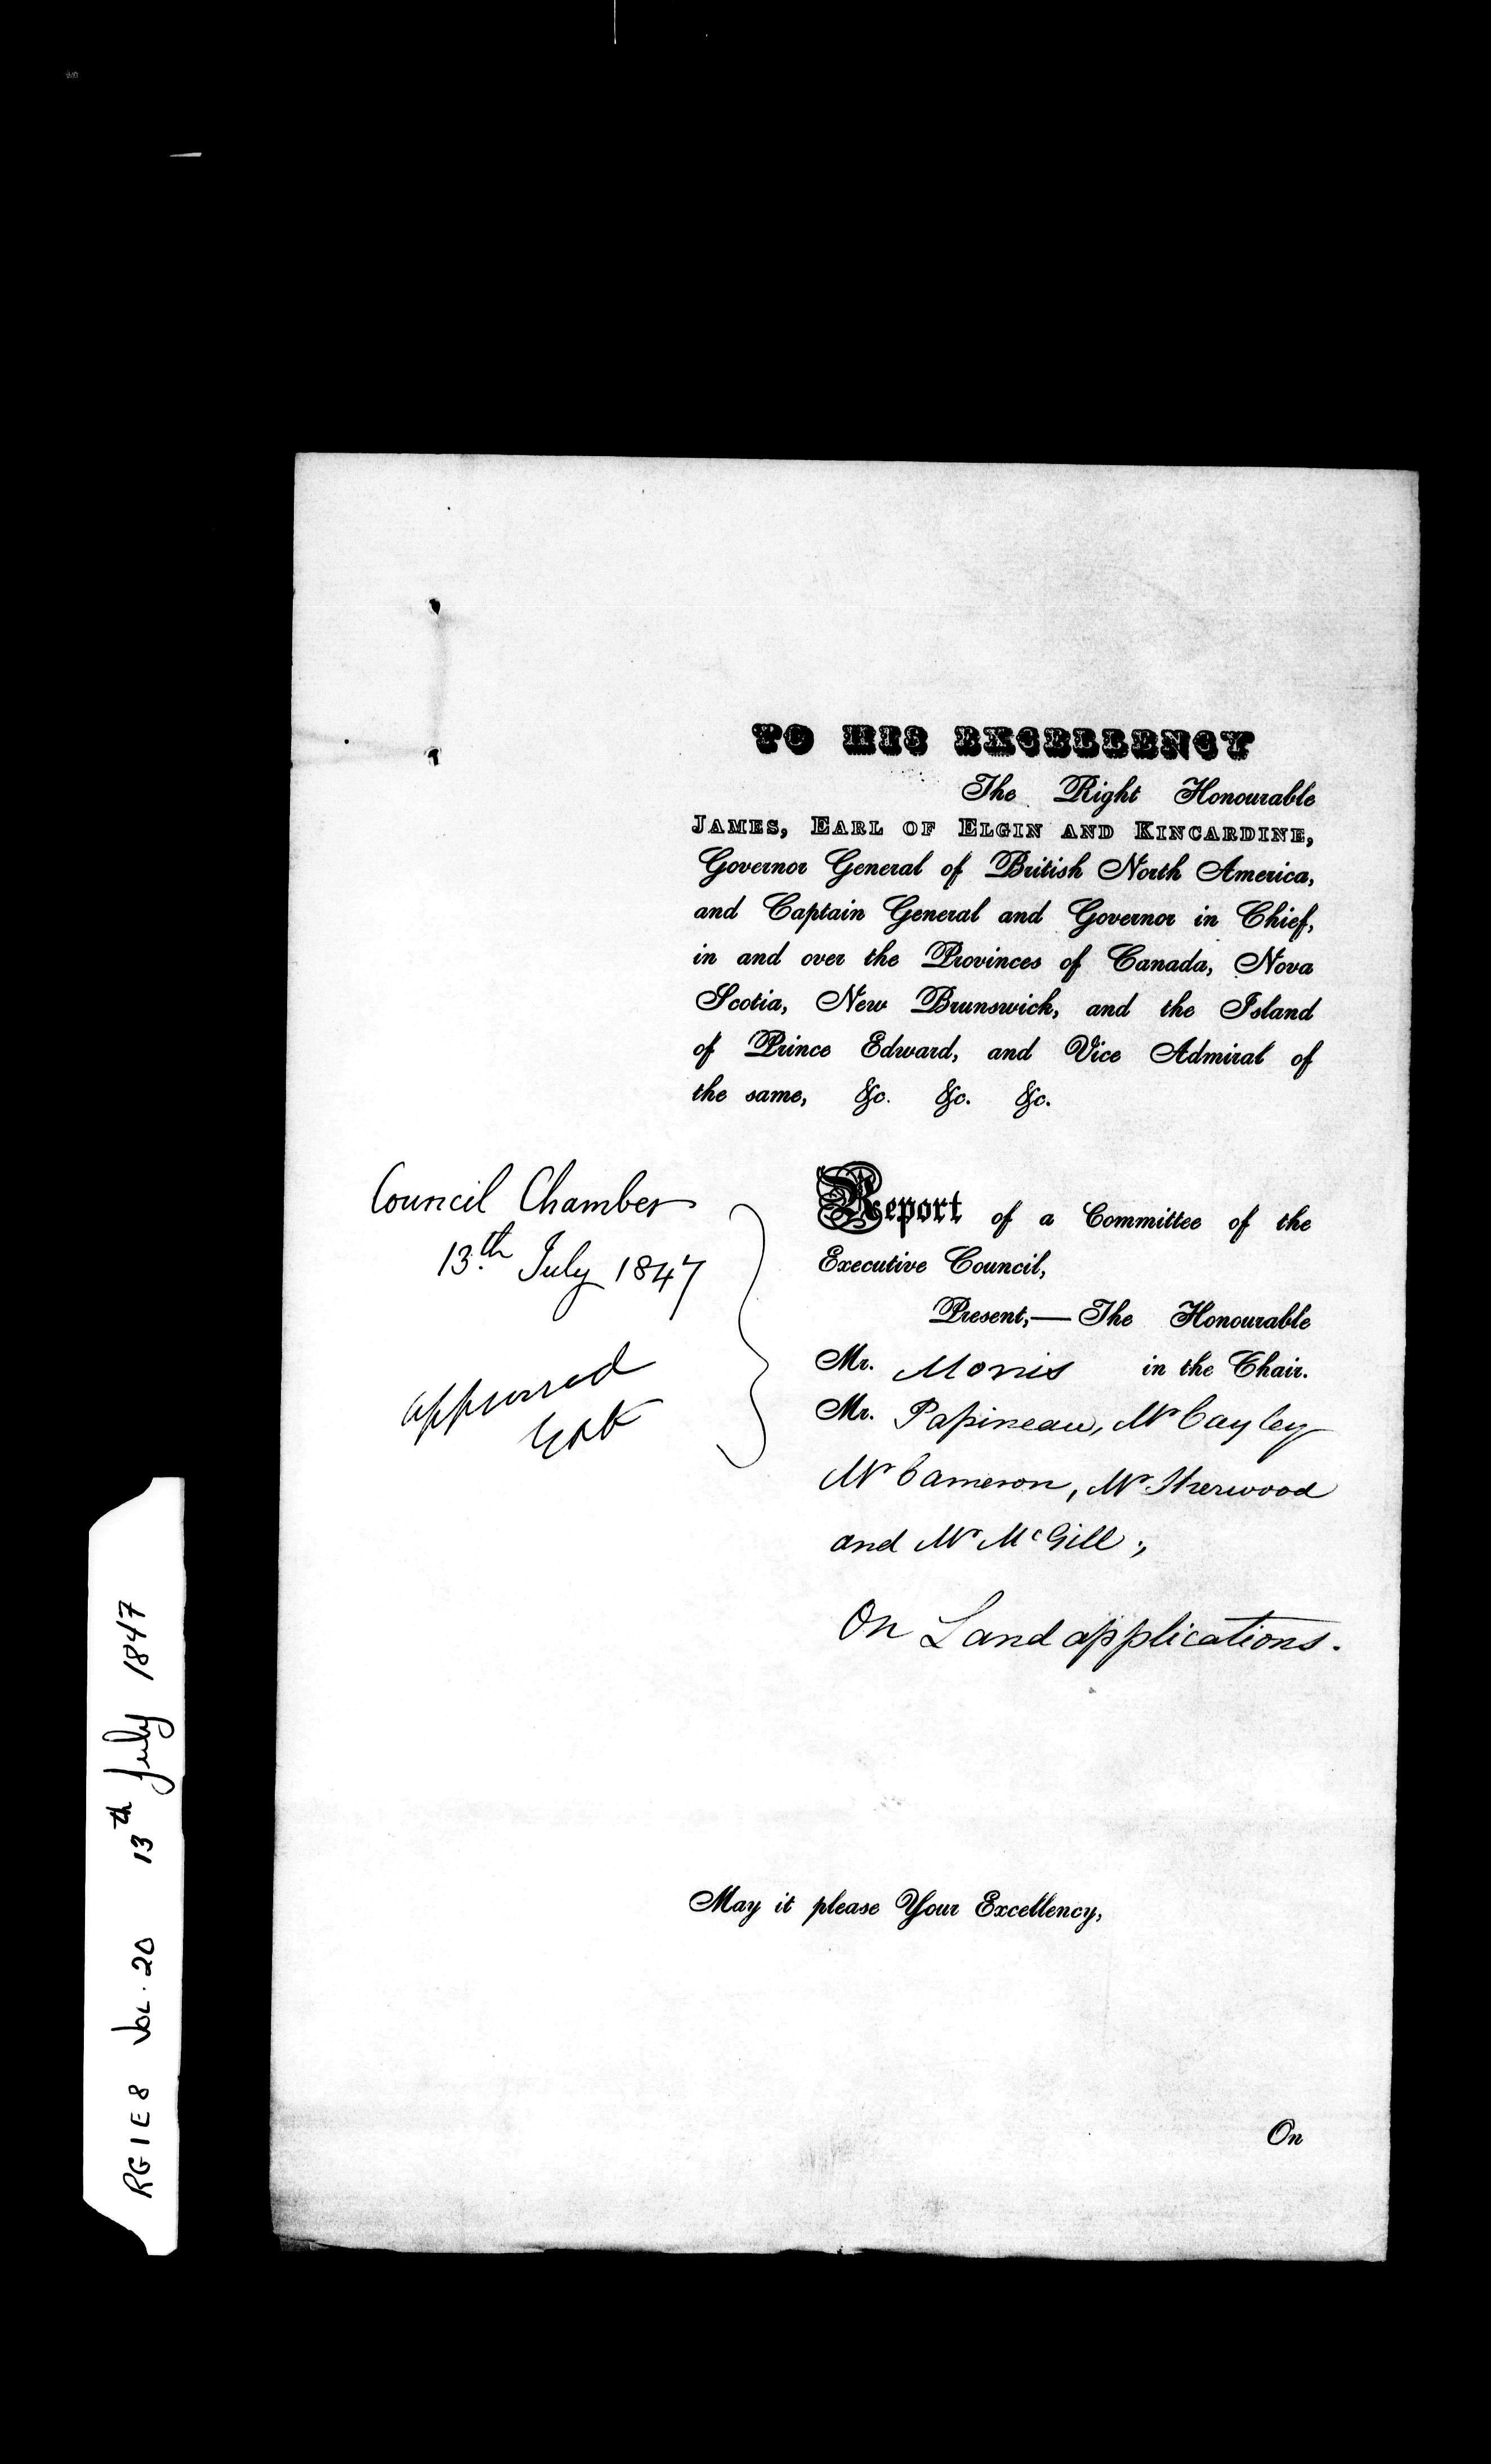 TO HIS EXCELLENCY
The Right Honourable
JAMES, EARL OF ELGIN AND KINCARDINE,
Governor General of British North America,
and Captain General and Governor in Chief,
in and over the Provinces of Canada, Nova
Scotia, New Brunswick, and the Island
of Prince Edward, and Vice Admiral of
the same, &c. &c. &c.
Council Chamber
13.th July 1847
approved
Report of a Committee of the
Executive Council,
Present,—The Honourable
Mr. Morris in the Chair.
Mr. Papineau, Mr Cayley
Mr Cameron, Mr Sherwood
and Mr McGill;,
On Land applications.
May it please Your Excellency,
On
RG 1 E 8 VOL. 20 13th July 1847